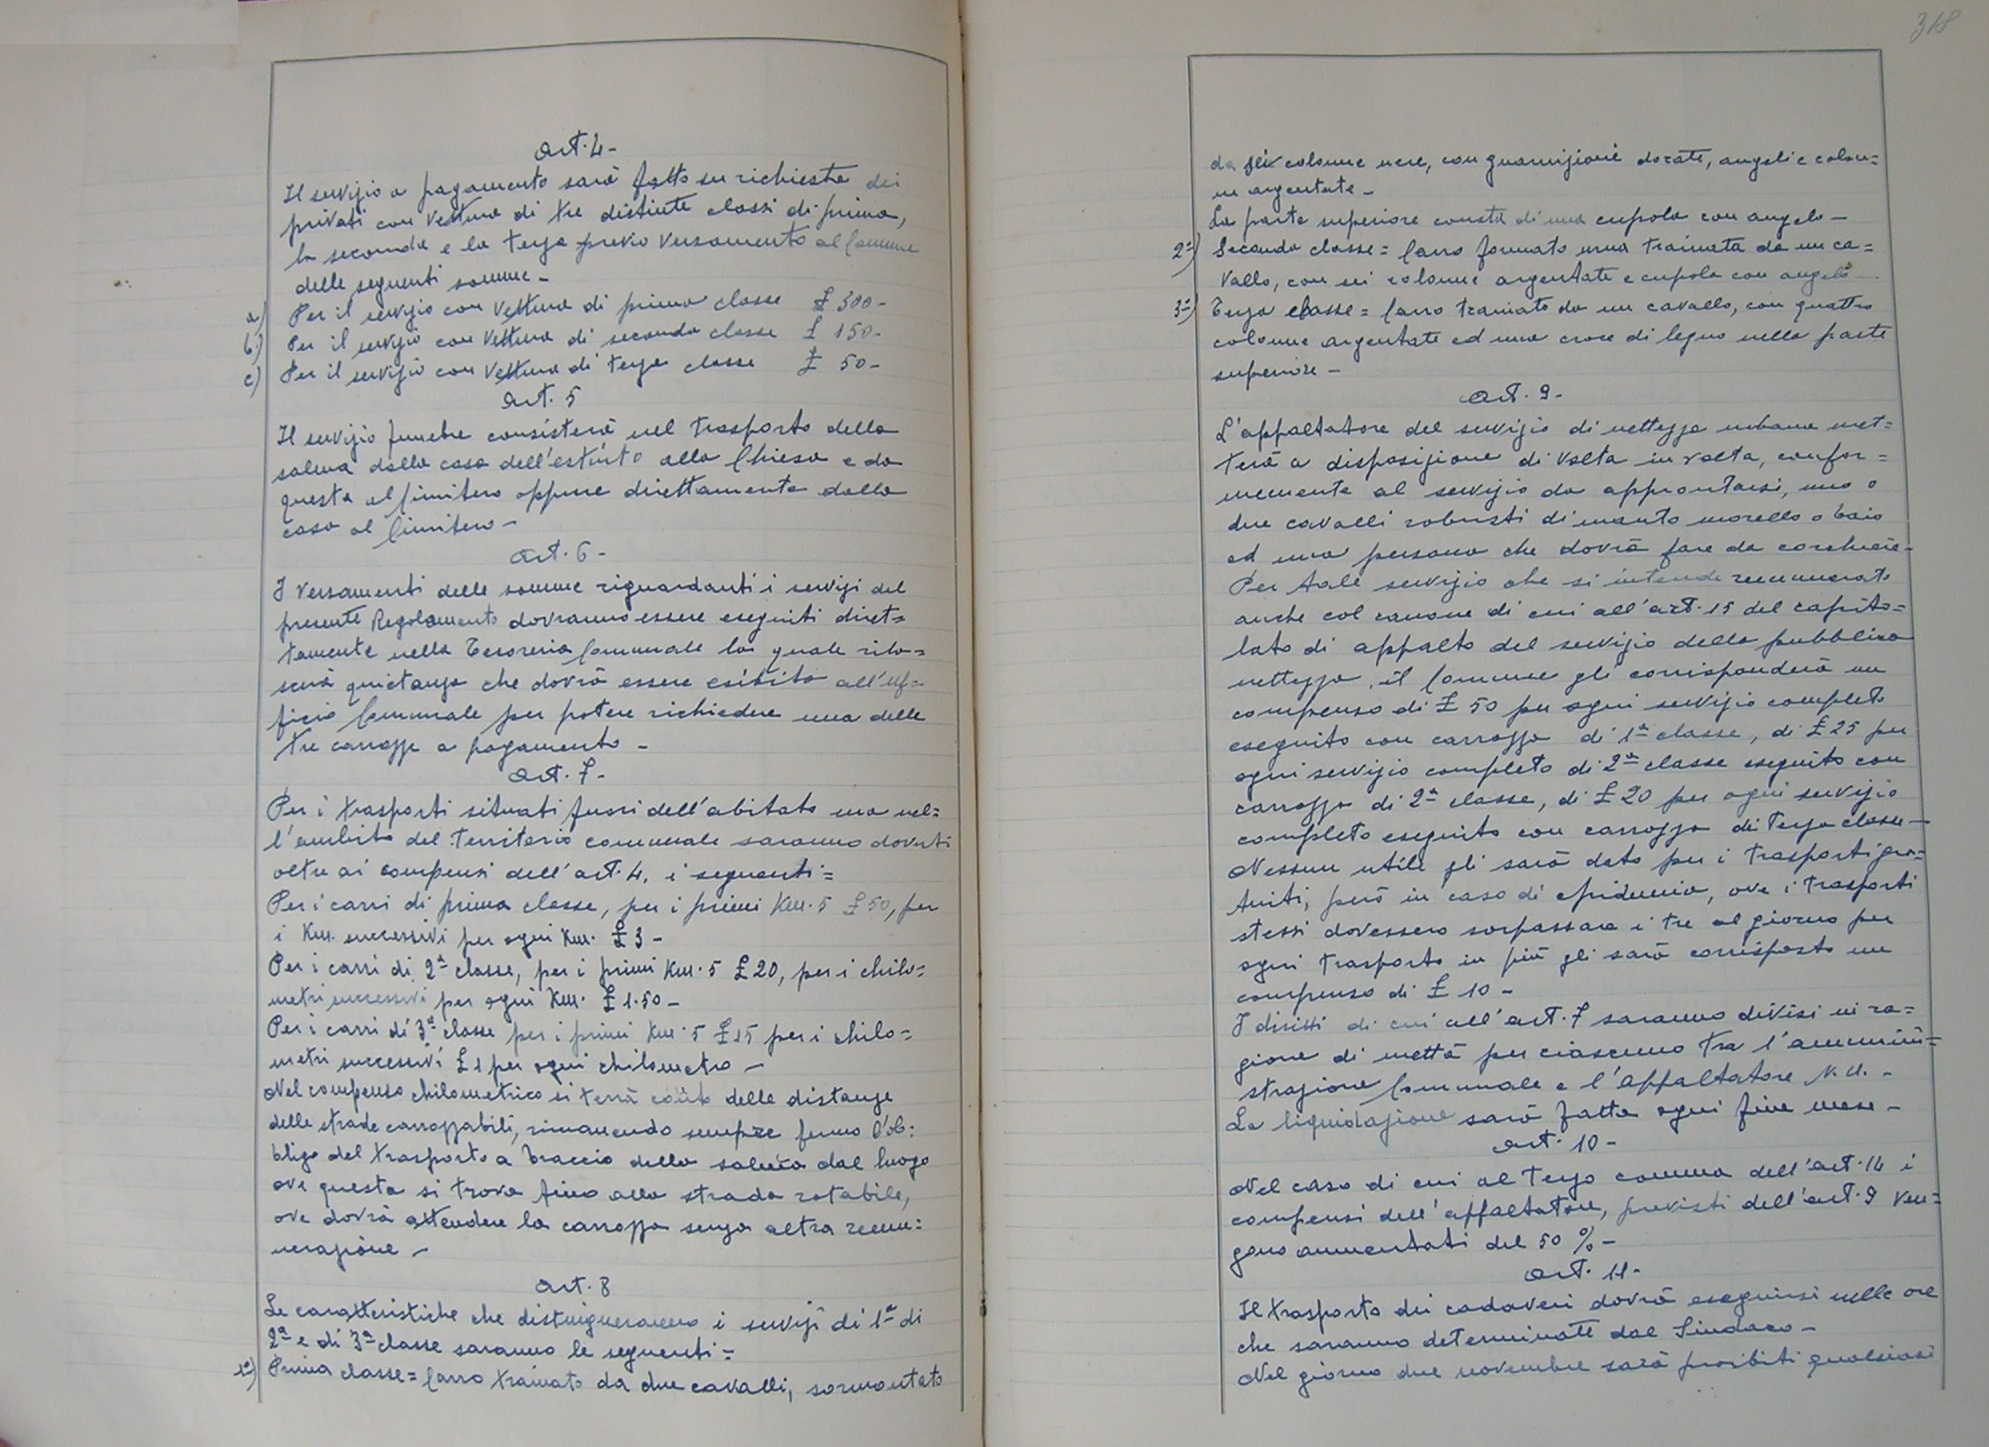 Art. 4-
Il servizio a pagamento sarà fatto su richiesta dei
privati con vettura di tre distinte classi di prima,
la seconda e la terza previo versamento al Comune
delle seguenti somme-
a) Per il servizio con vettura di prima classe £ 300-
b) Per il servizio con vettura di seconda classe £ 150-
c) Per il servizio con vettura di terza classe £ 50-
Art. 5
Il servizio funebre consisterà nel trasporto della
salma dalla casa dell'estinto alla Chiesa e da
questa al Cimitero oppure direttamente dalla
casa al Cimitero-
Art. 6-
I versamenti delle somme riguardanti i servizi del
presente Regolamento dovranno essere eseguiti diret=
tamente nella Tesoreria Comunale la quale rila=
scerà quietanza che dovrà essere esibita all'uf=
ficio Comunale per potere richiedere una delle
tre carrozze a pagamento-
Art. 7-
Per i trasporti situati fuori dell'abitato ma nel=
l'ambito del territorio comunale saranno dovuti
oltre ai compensi dell'art. 4, i seguenti=
Per i carri di prima classe, per i primi Km. 5 £ 50, per
i Km. successivi per ogni Km. £ 3-
Per i carri di 2ª classe, per i primi Km. 5 £ 20, per i chilo=
metri successivi per ogni Km. £ 1.50-
Per i carri di 3ª classe per i primi Km. 5 £ 15 per i chilo=
metri successivi £ 1 per ogni chilometro-
Nel compenso chilometrico si terrà conto delle distanze
delle strade carrozzabili, rimanendo sempre fermo l'ob=
bligo del trasporto a braccio della salma dal luogo
ove questa si trova fino alla strada rotabile,
ove dovrà attendere la carrozza senza altra remu=
nerazione-
Art. 8
Le caratteristiche che distingueranno i servizi di 1ª di
2ª e di 3ª classe saranno le seguenti=
1ª) Prima classe= Carro trainato da due cavalli, sormontato
318
da sei colonne nere, con guarnizioni dorate, angeli e colon=
ne argentate-
La parte superiore consta di una cupola con angelo-
2ª) Seconda classe= Carro formato urna trainata da un ca=
vallo, con sei colonne argentate e cupola con angelo-
3ª) Terza classe= Carro trainato da un cavallo, con quattro
colonne argentate ed una croce di legno nella parte
superiore-
Art. 9-
L'appaltatore del servizio di nettezza urbana met=
terà a disposizione di volta in volta, confor=
memente al servizio da approntarsi, uno o
due cavalli robusti di manto morello o baio
ed una persona che dovrà fare da cocchiere-
Per tale servizio che si intende remunerato
anche col canone di cui all'art. 15 del capito=
lato di appalto del servizio della pubblica
nettezza, il Comune gli corrisponderà un
compenso di £ 50 per ogni servizio completo
eseguito con carrozza di 1ª classe, di £ 25 per
ogni servizio completo di 2ª classe eseguito con
carrozza di 2ª classe, di £ 20 per ogni servizio
completo eseguito con carrozza di terza classe-
Nessun utile gli sarà dato per i trasporti gra=
tuiti, però in caso di epidemia, ove i trasporti
stessi dovessero sorpassare i tre al giorno per
ogni trasporto in più gli sarà corrisposto un
compenso di £ 10-
I diritti di cui all'art. 7 saranno divisi in ra=
gione di mettà per ciascuno tra l'ammini=
strazione Comunale e l'Appaltatore N. U.-
La liquidazione sarà fatta ogni fine mese-
Art. 10-
Nel caso di cui al terzo comma dell'art. 14 i
compensi dell'appaltatore, previsti dell'art. 9 ven=
gono aumentati del 50 %-
Art. 11-
Il trasporto dei cadaveri dovrà eseguirsi nelle ore
che saranno determinate dal Sindaco-
Nel giorno due novembre sarà proibiti qualsiasi